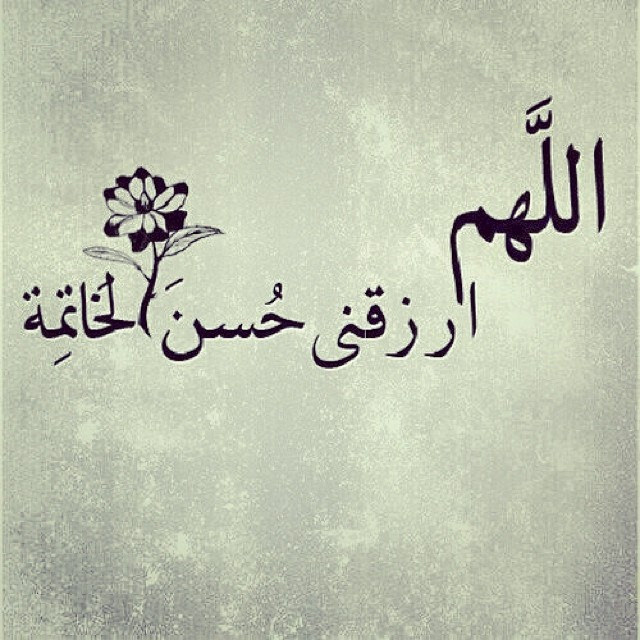 اللَّهم
ارزقنى حُسنَ الخَاتِمة